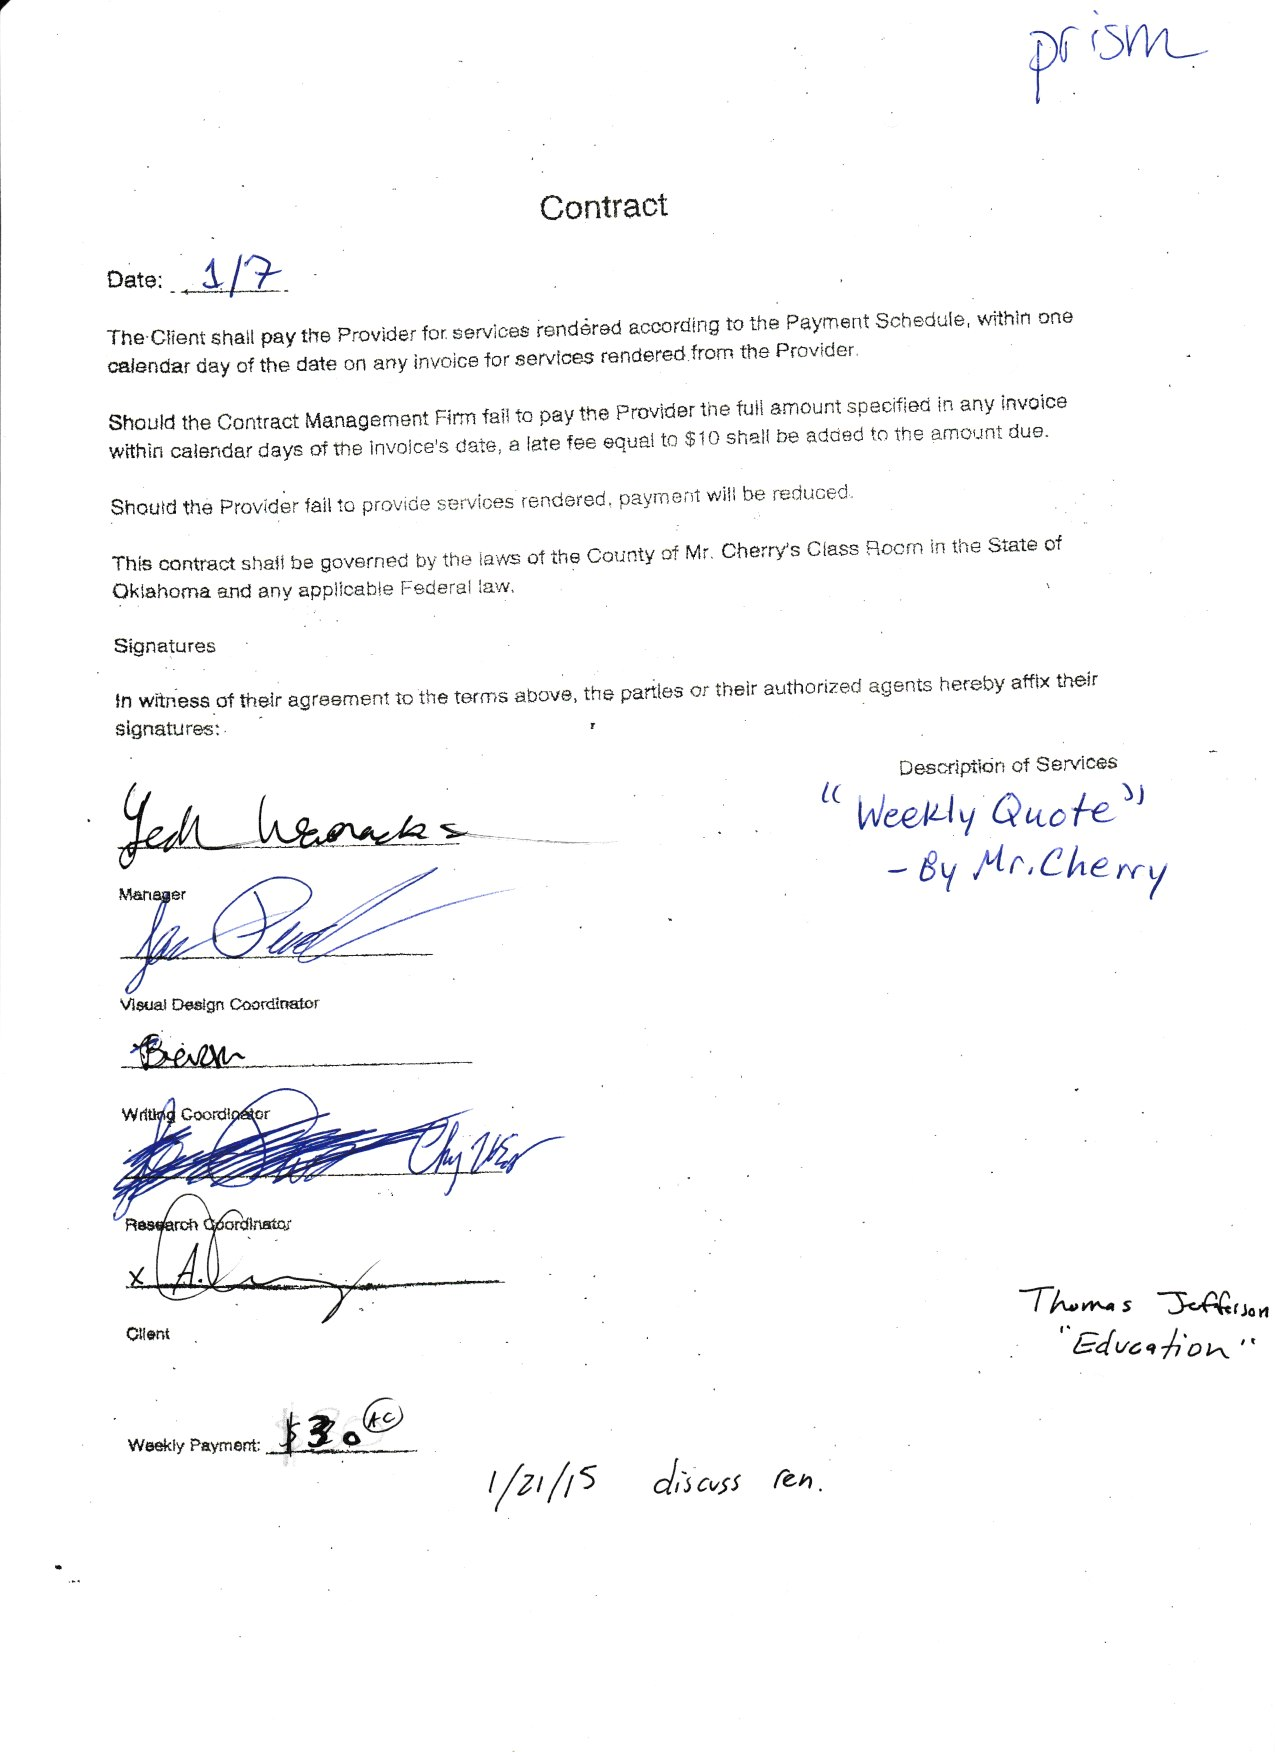 prism
Contract
Date: 1/7
The Client shall pay the Provider for services rendered according to the Payment Schedule, within one
calendar day of the date on any invoice for services rendered from the Provider.
Should the Contract Management Firm fail to pay the Provider the full amount specified in any invoice
within calendar days of the invoice's date, a late fee equal to $10 shall be added to the amount due.
Should the Provider fail to provide services rendered, payment will be reduced.
This contract shall be governed by the laws of the County of Mr. Cherry's Class Room in the State of
Oklahoma and any applicable Federal law.
Signatures
In witness of their agreement to the terms above, the parties or their authorized agents hereby affix their
signatures:
Description of Services
"Weekly Quote"
- By Mr. Cherry
Manager
Visual Design Coordinator
Writing Coordinator
Research Coordinator
x A.
Thomas Jefferson
"Education"
Client
Weekly Payment: $30 AC
1/21/15 discuss ren.